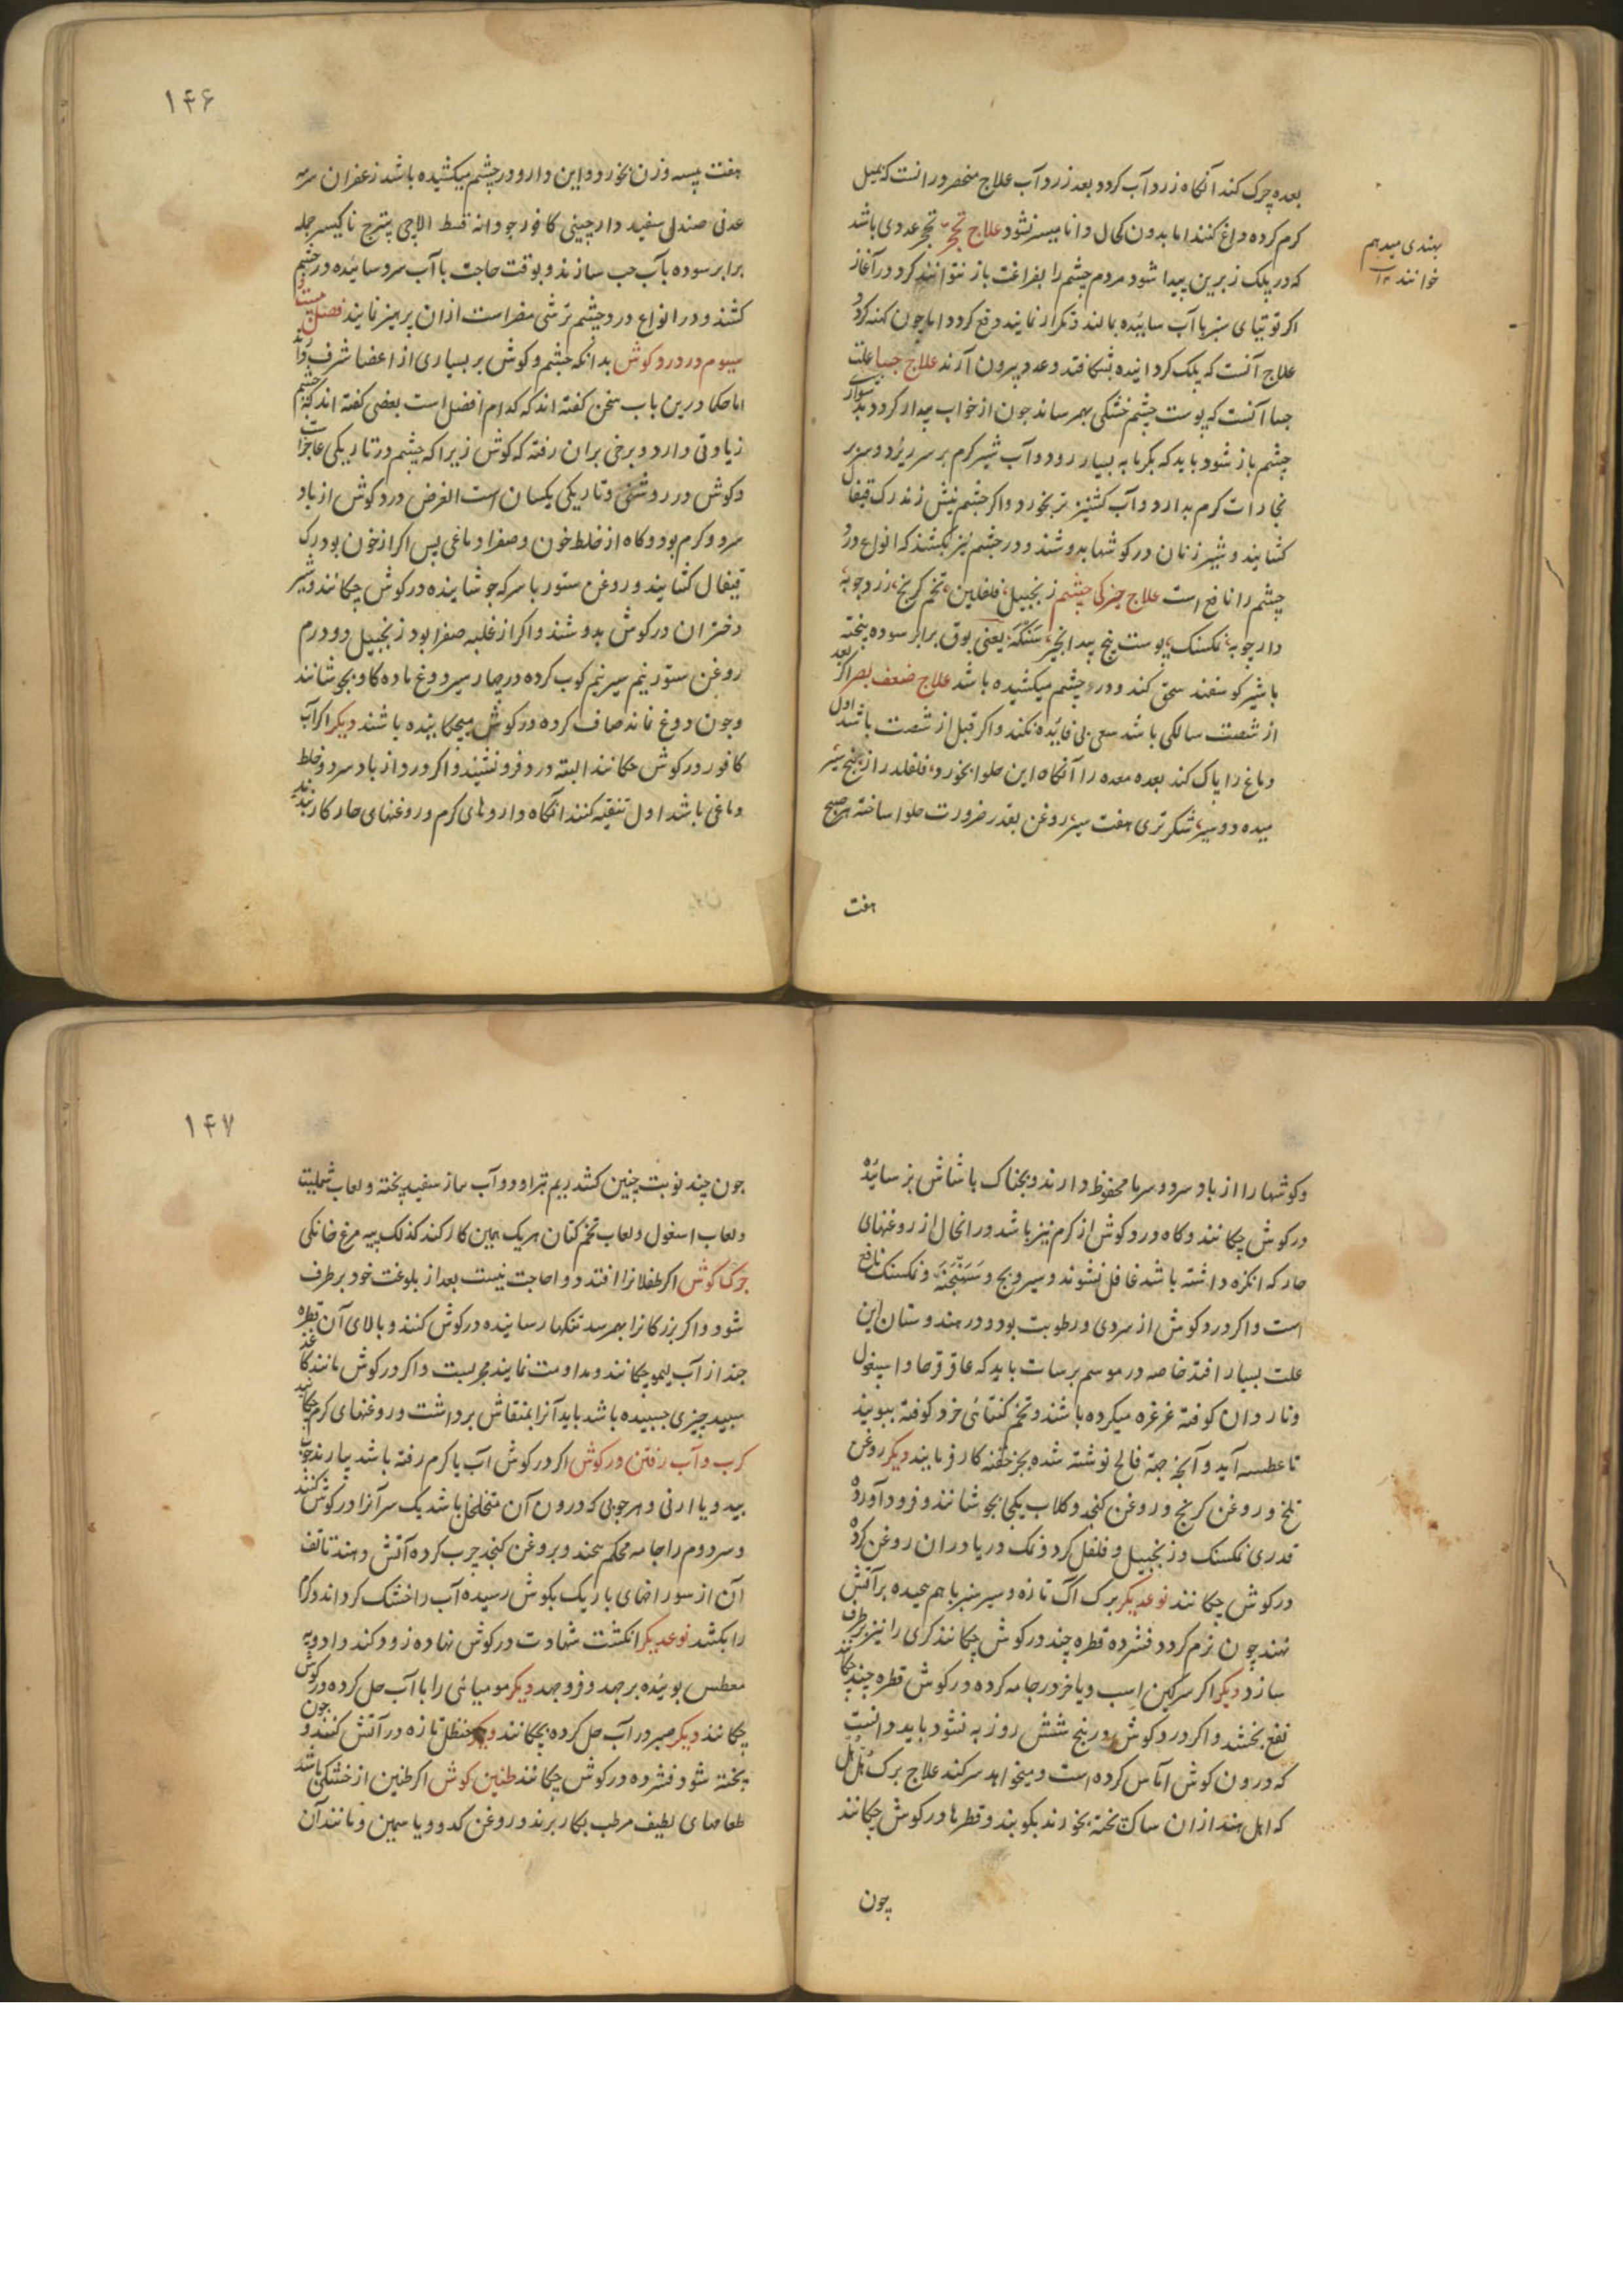 بعده چرک کند آنگاه زرد آب کردد بعد زرد آب علاج منحصر درانست که بمیل
کرم کرده داغ کنند اما بدون کحال دانا میسر نشود علاج تحجر تحجر غددی باشد
که در پلک زیرین پیدا شود مردم چشم را بفراغت باز نتوانند کرد در آغاز
اکر توتیای سبز با آب سائیده بمالند و تکرار نمایند دفع کردد اما چون کهنه کردد
علاج آنست که پلک کردانیده بشکافند و غدد بیرون آرند علاج جسا علت
جسا آنست که پوست چشم خشکی بهم رساند چون از خواب بیدار کردد بدشواری
چشم باز شود باید که بکرمابه بسیار رود و آب شیر کرم بر سر ریزد و سر بر
بخارات کرم بدارد و آب کشنیز تر بخورد و اکر چشم نیش زند رک قیفال
کشایند و شیر زنان در کوشها بدوشند و در چشم نیز بکشند که انواع درد
چشم را نافع است علاج خیرکی چشم زنجبیل، فلفلین، تخم کرنج، زردچوبه،
دارچوبه، نمکسنک، پوست بیخ بیدانجیر، سنکه، یعنی بوق برابر سوده پخته
با شیر کوسفند سحق کند و در چشم میکشیده باشد علاج ضعف بصر اکر بعد
از شصت سالکی باشد سعی بی فایده نکند و اکر قبل از شصت باشد اول
دماغ را پاک کند بعده معده را آنگاه این حلوا بخورد، فلفلدراز پنج سیر
میده دو سیر، شکر تری هفت سیر، روغن بقدر ضرورت حلوا ساخته هر صبح
هفت
بهندی میدهم
خوانند ۱۲
۱۴۶
هفت پیسه وزن بخورد و این دارو در چشم میکشیده باشد زعفران سرمه
عدنی صندل سفید دارچینی کافور جودانه قسط الاچی پترج ناکیسر جمله
برابر سوده بآب حب سازند و بوقت حاجت با آب سرد سائیده در چشم
کشند و در انواع درد چشم ترشی مضر است ازان پرهیز نمایند فصل بیست و
سیوم در درد کوش بدانکه چشم و کوش بر بسیاری از اعضا شرف دارند
اما حکما درین باب سخن کفته اند که کدام افضل است بعضی کفته اند که چشم
زیادتی دارد و برخی بران رفته که کوش زیرا که چشم در تاریکی عاجز است
و کوش در روشنی و تاریکی یکسان است الغرض درد کوش از باد
سرد و کرم بود و کاه از خلط خون و صفرا و دماغی پس اکر از خون بود رک
قیفال کشایند و روغن ستور با سرکه جوشانیده در کوش چکانند و شیر
دختران در کوش بدوشند و اکر از غلبه صفرا بود زنجبیل دو درم
روغن ستور نیم سیر نیم کوب کرده در چهار سیر دوغ ماده کاو بجوشانند
و چون دوغ نماند صاف کرده در کوش میچکانیده باشند دیکر اکر آب
کافور در کوش چکانند البته درد فرو نشیند و اکر درد از باد سرد و خلط
دماغی باشد اول تنقیه کنند آنگاه داروهای کرم و روغنهای حار کار بندند
و کوشها را از باد سرد و سرما محفوظ دارند و بخناک با شاش بز سائیده
در کوش چکانند و کاه درد کوش از کرم نیز باشد در انحال از روغنهای
حار که انکزه داشته باشد غافل نشوند و سیر و بج و سهنجنه و نمکسنک نافع
است و اکر درد کوش از سردی و رطوبت بود و در هندوستان این
علت بسیار افتد خاصه در موسم برسات باید که عاقرقرحا و اسپغول
و ناردان کوفته غرغره میکرده باشند و تخم کتائی خرد کوفته ببویند
تا عطسه آید و آنچه جهة فالج نوشته شده بجز حقنه کار فرمایند دیکر روغن
تلخ و روغن کرنج و روغن کنجد و کلاب یکجا بجوشانند و فرود آورده
قدری نمکسنک و زنجبیل و فلفل کرد و نمک دریا دران روغن کرده
در کوش چکانند نوعدیکر برک اک تازه و سیر سبز باهم پیچیده بر آتش
نهند چون نرم کردد فشرده قطره چند در کوش چکانند کری را نیز برطرف
سازد دیکر اکر سرکین اسب و یا خر در جامه کرده در کوش قطره چند چکانند
نفع بخشد و اکر درد کوش در پنج شش روز به نشود باید دانست
که درون کوش آماس کرده است و میخواهد سر کند علاج برک هل هل
که اهل هند ازان ساک پخته بخورند بکوبند و قطرها در کوش چکانند
چون
۱۴۷
چون چند نوبت چنین کشد ریم بتراود و آب پیاز سفید پخته و لعاب شملیت
و لعاب اسغول و لعاب تخم کتان هر یک همین کار کند کذلک پیه مرغ خانکی
چرک کوش اکر طفلانرا افتد دوا حاجت نیست بعد از بلوغت خود برطرف
شود و اکر بزرکانرا بهم رسد تنکهار سائیده در کوش کنند و بالای آن قطره
چند از آب لیمو چکانند و مداومت نمایند مجربست و اکر در کوش مانند کاغذ
سپید چیزی چسپیده باشد باید آنرا بمنقاش برداشت و روغنهای کرم چکانید
کرب و آب رفتن در کوش اکر در کوش آب یا کرم رفته باشد بیارند چوب
بید و یا ارنی و هر چوبی که درون آن متخلخل باشد یک سر آنرا در کوش کنند
و سر دوم را جامه محکم پیچند و بروغن کنجد چرب کرده آتش دهند تا تف
آن از سوراخهای باریک بکوش رسیده آب را خشک کرداند و کرم
را بکشد نوعدیکر انکشت شهادت در کوش نهاده زود کند و ادویه
معطس بوئیده برجهد و فروجهد دیکر مومیائی را با آب حل کرده در کوش
چکانند دیکر صبر در آب حل کرده بچکانند دیکر حنظل تازه در آتش کنند و چون
پخته شود فشرده در کوش چکانند طنین کوش اکر طنین از خشکی باشد
طعامهای لطیف مرطب بکار برند و روغن کدو و یاسمین و مانند آن